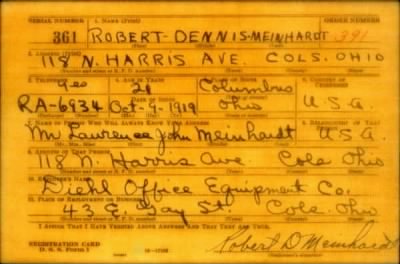 SERIAL NUMBER 1. NAME (Print) ORDER NUMBER
361 ROBERT-DENNIS-MEINHARDT 391
(First) (Middle) (Last)
2. ADDRESS (Print)
118 N. HARRIS AVE. COLS. OHIO
3. TELEPHONE 4. AGE IN YEARS 5. PLACE OF BIRTH 6. COUNTRY OF CITIZENSHIP
Yes 21 Columbus
RA-6934 Oct-9-1919 Ohio U.S.A.
7. NAME OF PERSON WHO WILL ALWAYS KNOW YOUR ADDRESS 8. RELATIONSHIP OF THAT PERSON
Mr Lawrence John Meinhardt USA
9. ADDRESS OF THAT PERSON
118 N. Harris Ave Cols Ohio
10. EMPLOYER'S NAME
Diehl Office Equipment Co.
11. PLACE OF EMPLOYMENT OR BUSINESS
43 E. Gay St. Cols. Ohio
I AFFIRM THAT I HAVE VERIFIED ABOVE ANSWERS AND THAT THEY ARE TRUE.
REGISTRATION CARD Robert D Meinhardt
D. S. S. Form 1